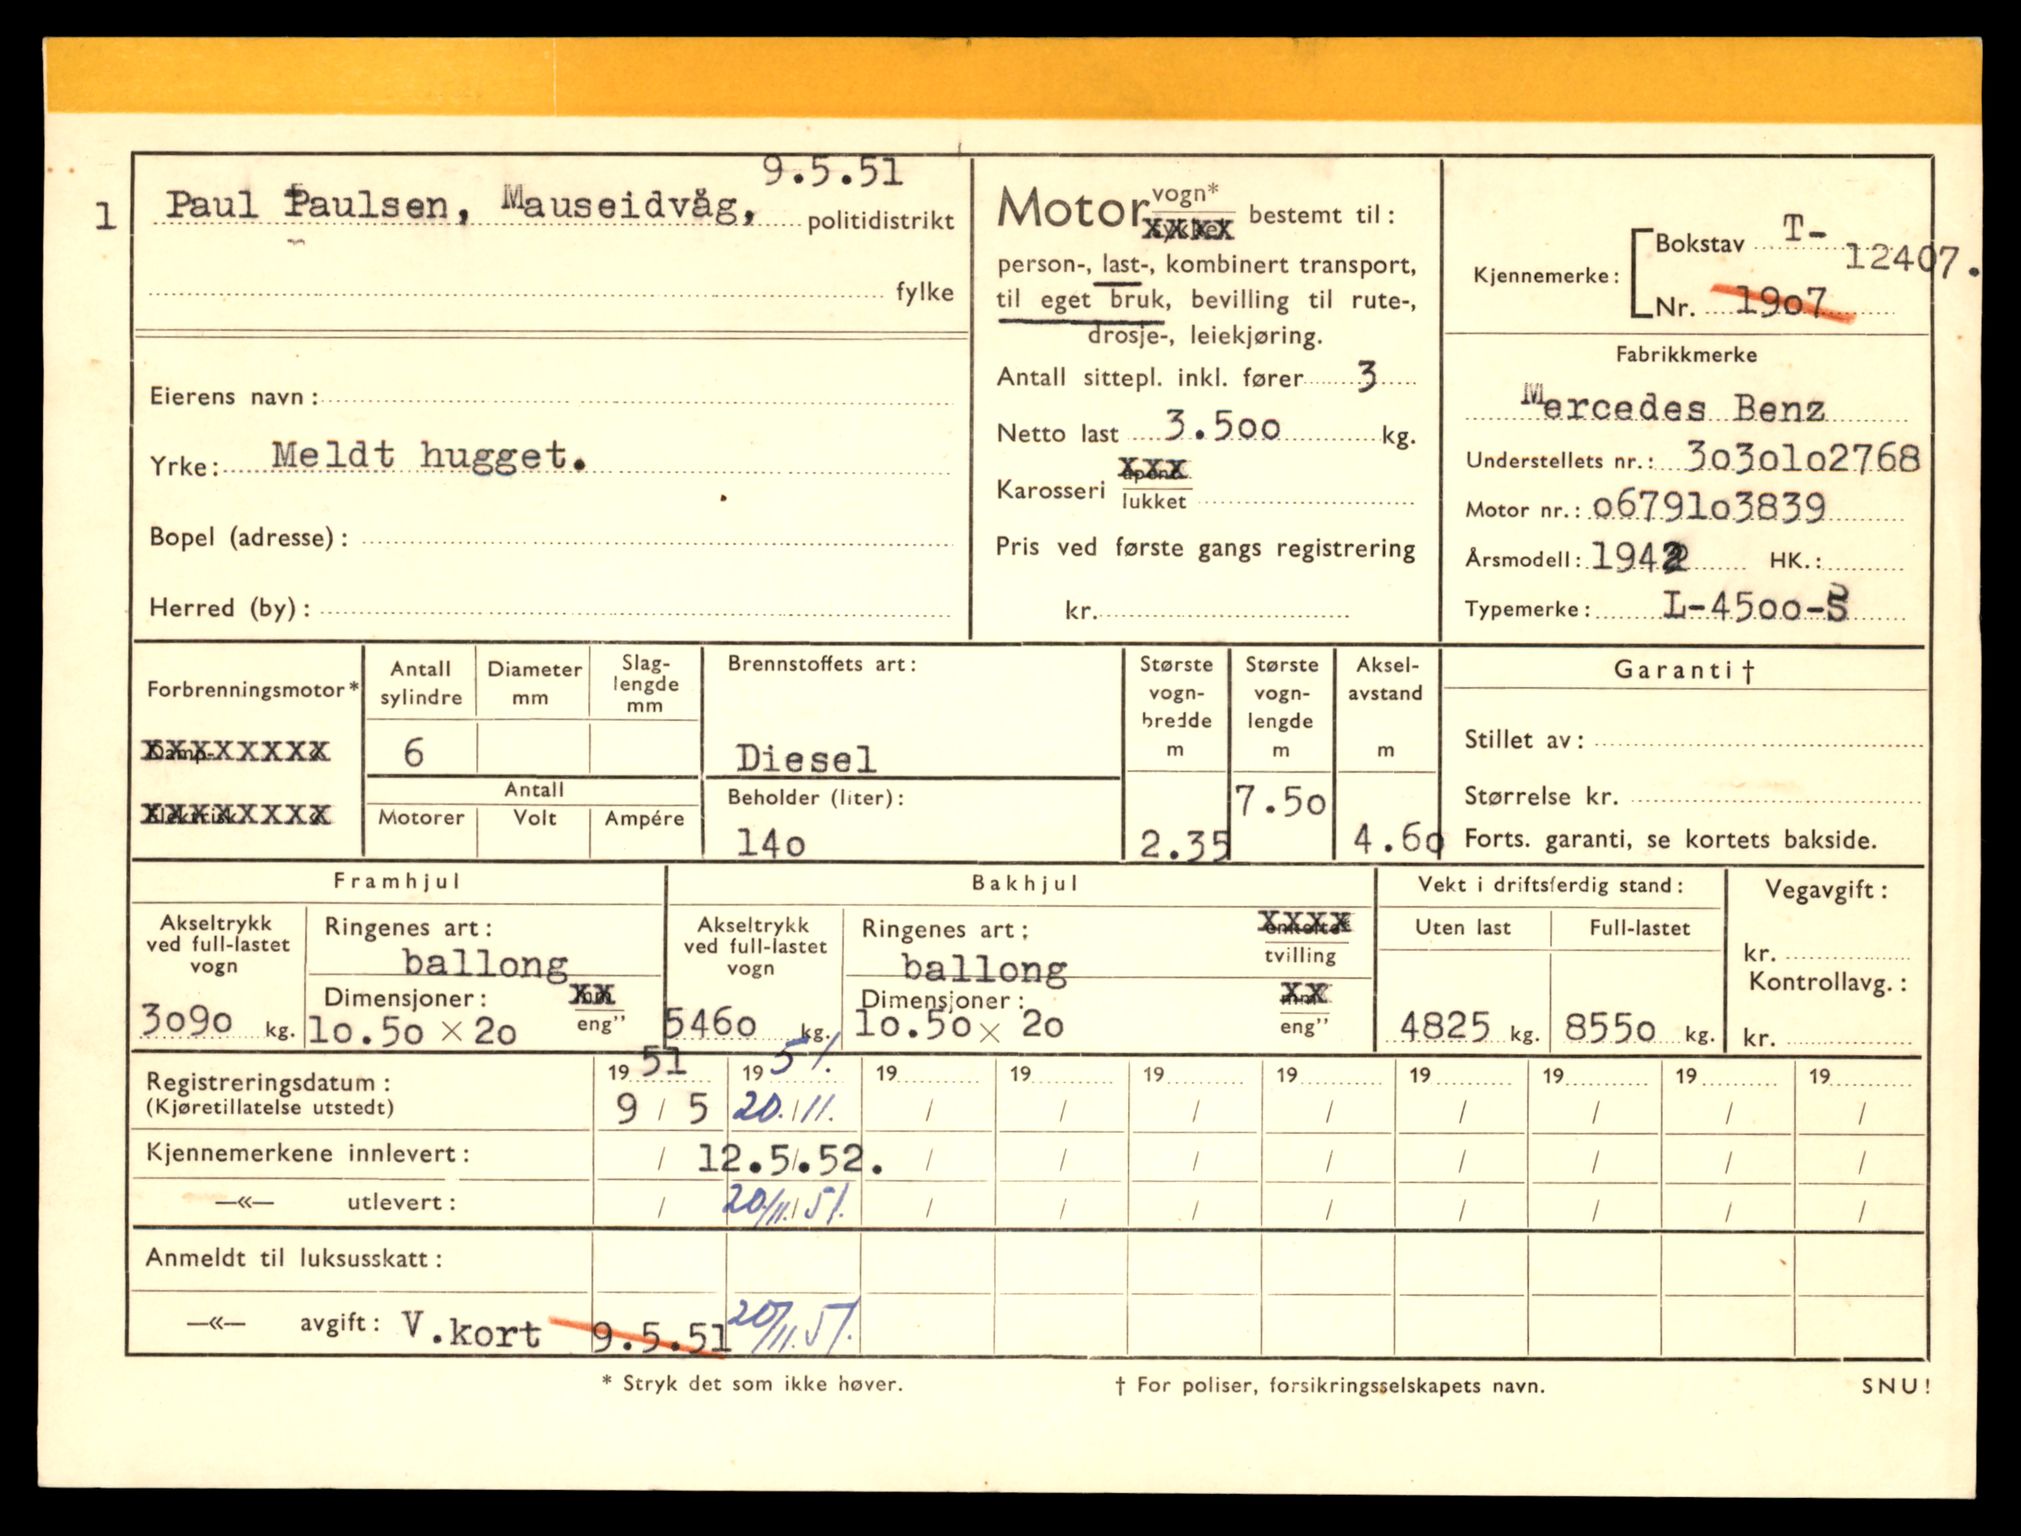 9.5.51
1 Paul Paulsen, Mauseidvåg, politidistrikt
fylke
Eierens navn:
Yrke: Meldt hugget.
Bopel (adresse):
Herred (by):
Motor vogn* bestemt til:
person-, last-, kombinert transport,
til eget bruk, bevilling til rute-,
drosje-, leiekjøring.
Antall sittepl. inkl. fører 3
Netto last 3.500 kg.
Karosseri xxx
lukket
Pris ved første gangs registrering
kr.
Kjennemerke: Bokstav T-
12407.
Nr. 1907
Fabrikkmerke
Mercedes Benz
Understellets nr.: 3030102768
Motor nr.: 0679103839
Årsmodell: 1942 HK.:
Typemerke: L-4500-S
Forbrenningsmotor*
XXXXXXXX
XXXXXXXX
Antall sylindre
6
Diameter mm
Slag-
lengde
mm
Antall
Motorer Volt Ampére
Brennstoffets art:
Diesel
Beholder (liter):
140
Største
vogn-
bredde
m
2.35
Største
vogn-
lengde
m
7.50
Aksel-
avstand
m
4.60
Garanti †
Stillet av:
Størrelse kr.
Forts. garanti, se kortets bakside.
Framhjul
Akseltrykk
ved full-lastet
vogn
3090 kg.
Ringenes art:
ballong
Dimensjoner: XX
10.50 × 20 eng”
Bakhjul
Akseltrykk
ved full-lastet
vogn
5460 kg.
Ringenes art: XXXX
tvilling
ballong
Dimensjoner: XX
10.50 × 20 eng”
Vekt i driftsferdig stand:
Uten last Full-lastet
4825 kg. 8550 kg.
Vegavgift:
kr.
Kontrollavg.:
kr.
Registreringsdatum: 19 51 19 51. 19 19 19 19 19 19 19 19
(Kjøretillatelse utstedt) 9 / 5 20./11. / / / / / / / /
Kjennemerkene innlevert: / 12.5/.52. / / / / / / / /
—«— utlevert: / 20/11./51. / / / / / / / /
Anmeldt til luksusskatt:
—«— avgift: V.kort 9.5.51 20/11.51.
* Stryk det som ikke høver. † For poliser, forsikringsselskapets navn. SNU!